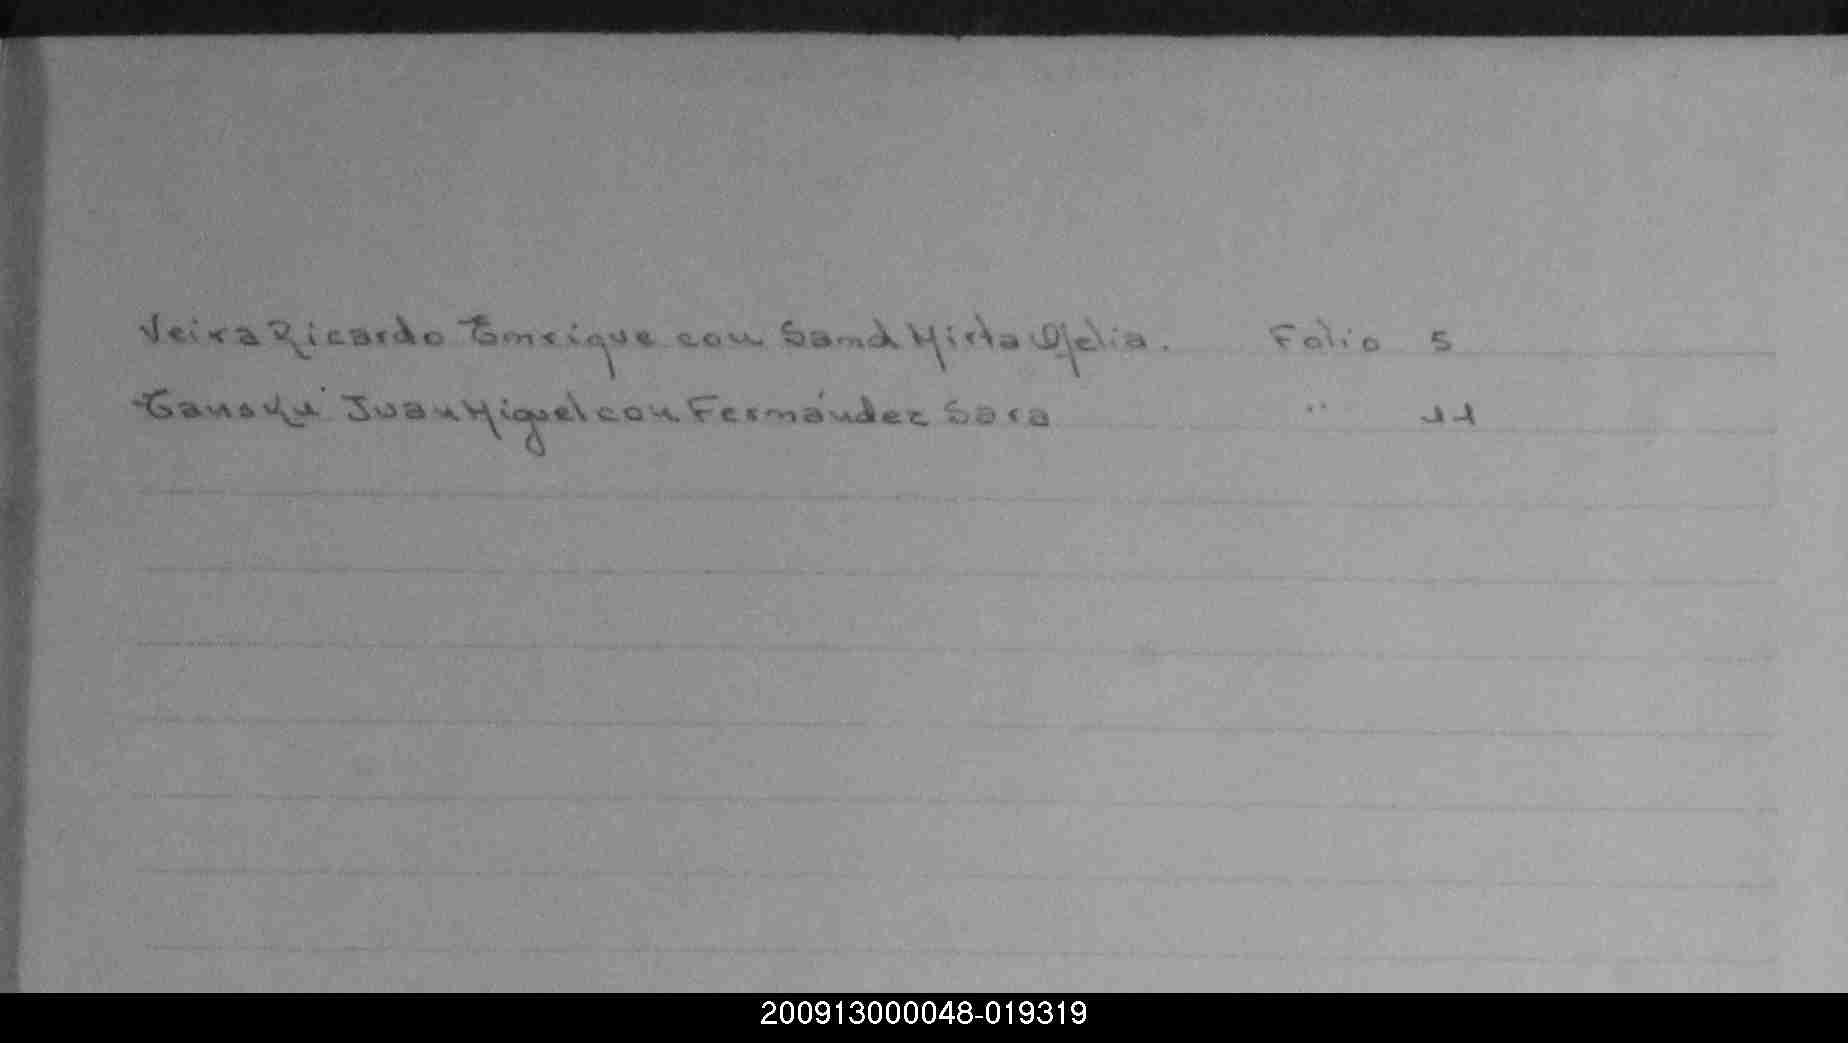 Veira Ricardo Enrique con Sand Mirta Ofelia. Folio 5
Juan Miguel con Fernández Sara " 11
200913000048-019319